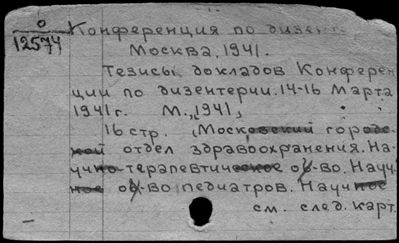 О
12574
Конференция по дизент
Москва, 1941.
Тезисы докладов Конферен
ции по дизентерии. 14-16 марта
1941 г. М., 1941,
16 стр. (Московский городс-
кой отдел здравоохранения. На-
учно-терапевтическое об-во. Науч-
ное об-во педиатров. Научное
см. след. карт.